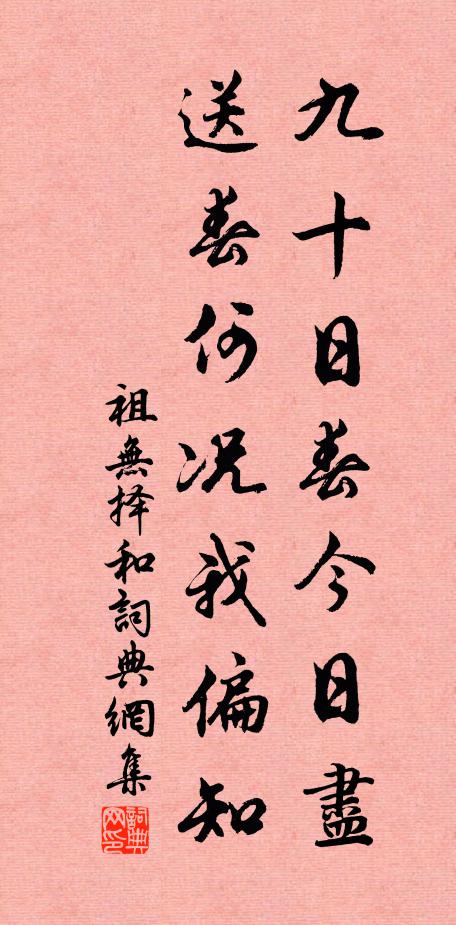 九十日春今日盡
送春何況我偏知
祖無择和詞典網集
詞典网印